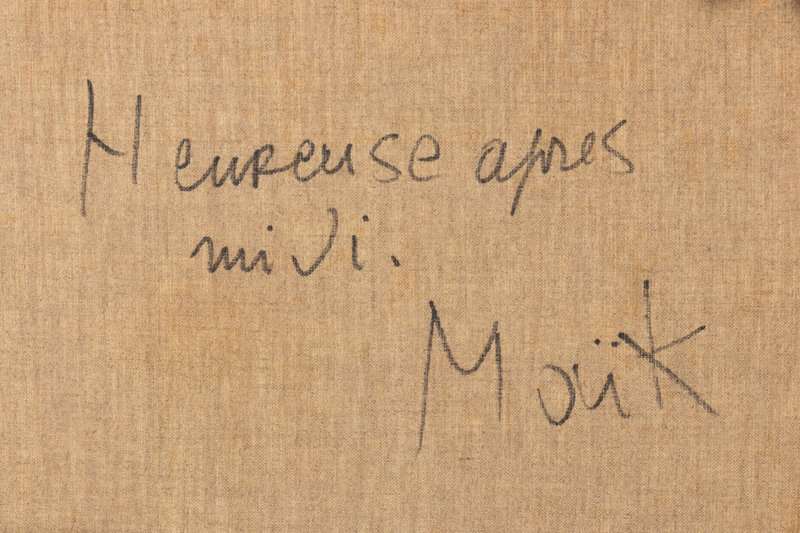 Heureuse apres
midi.
Maïk